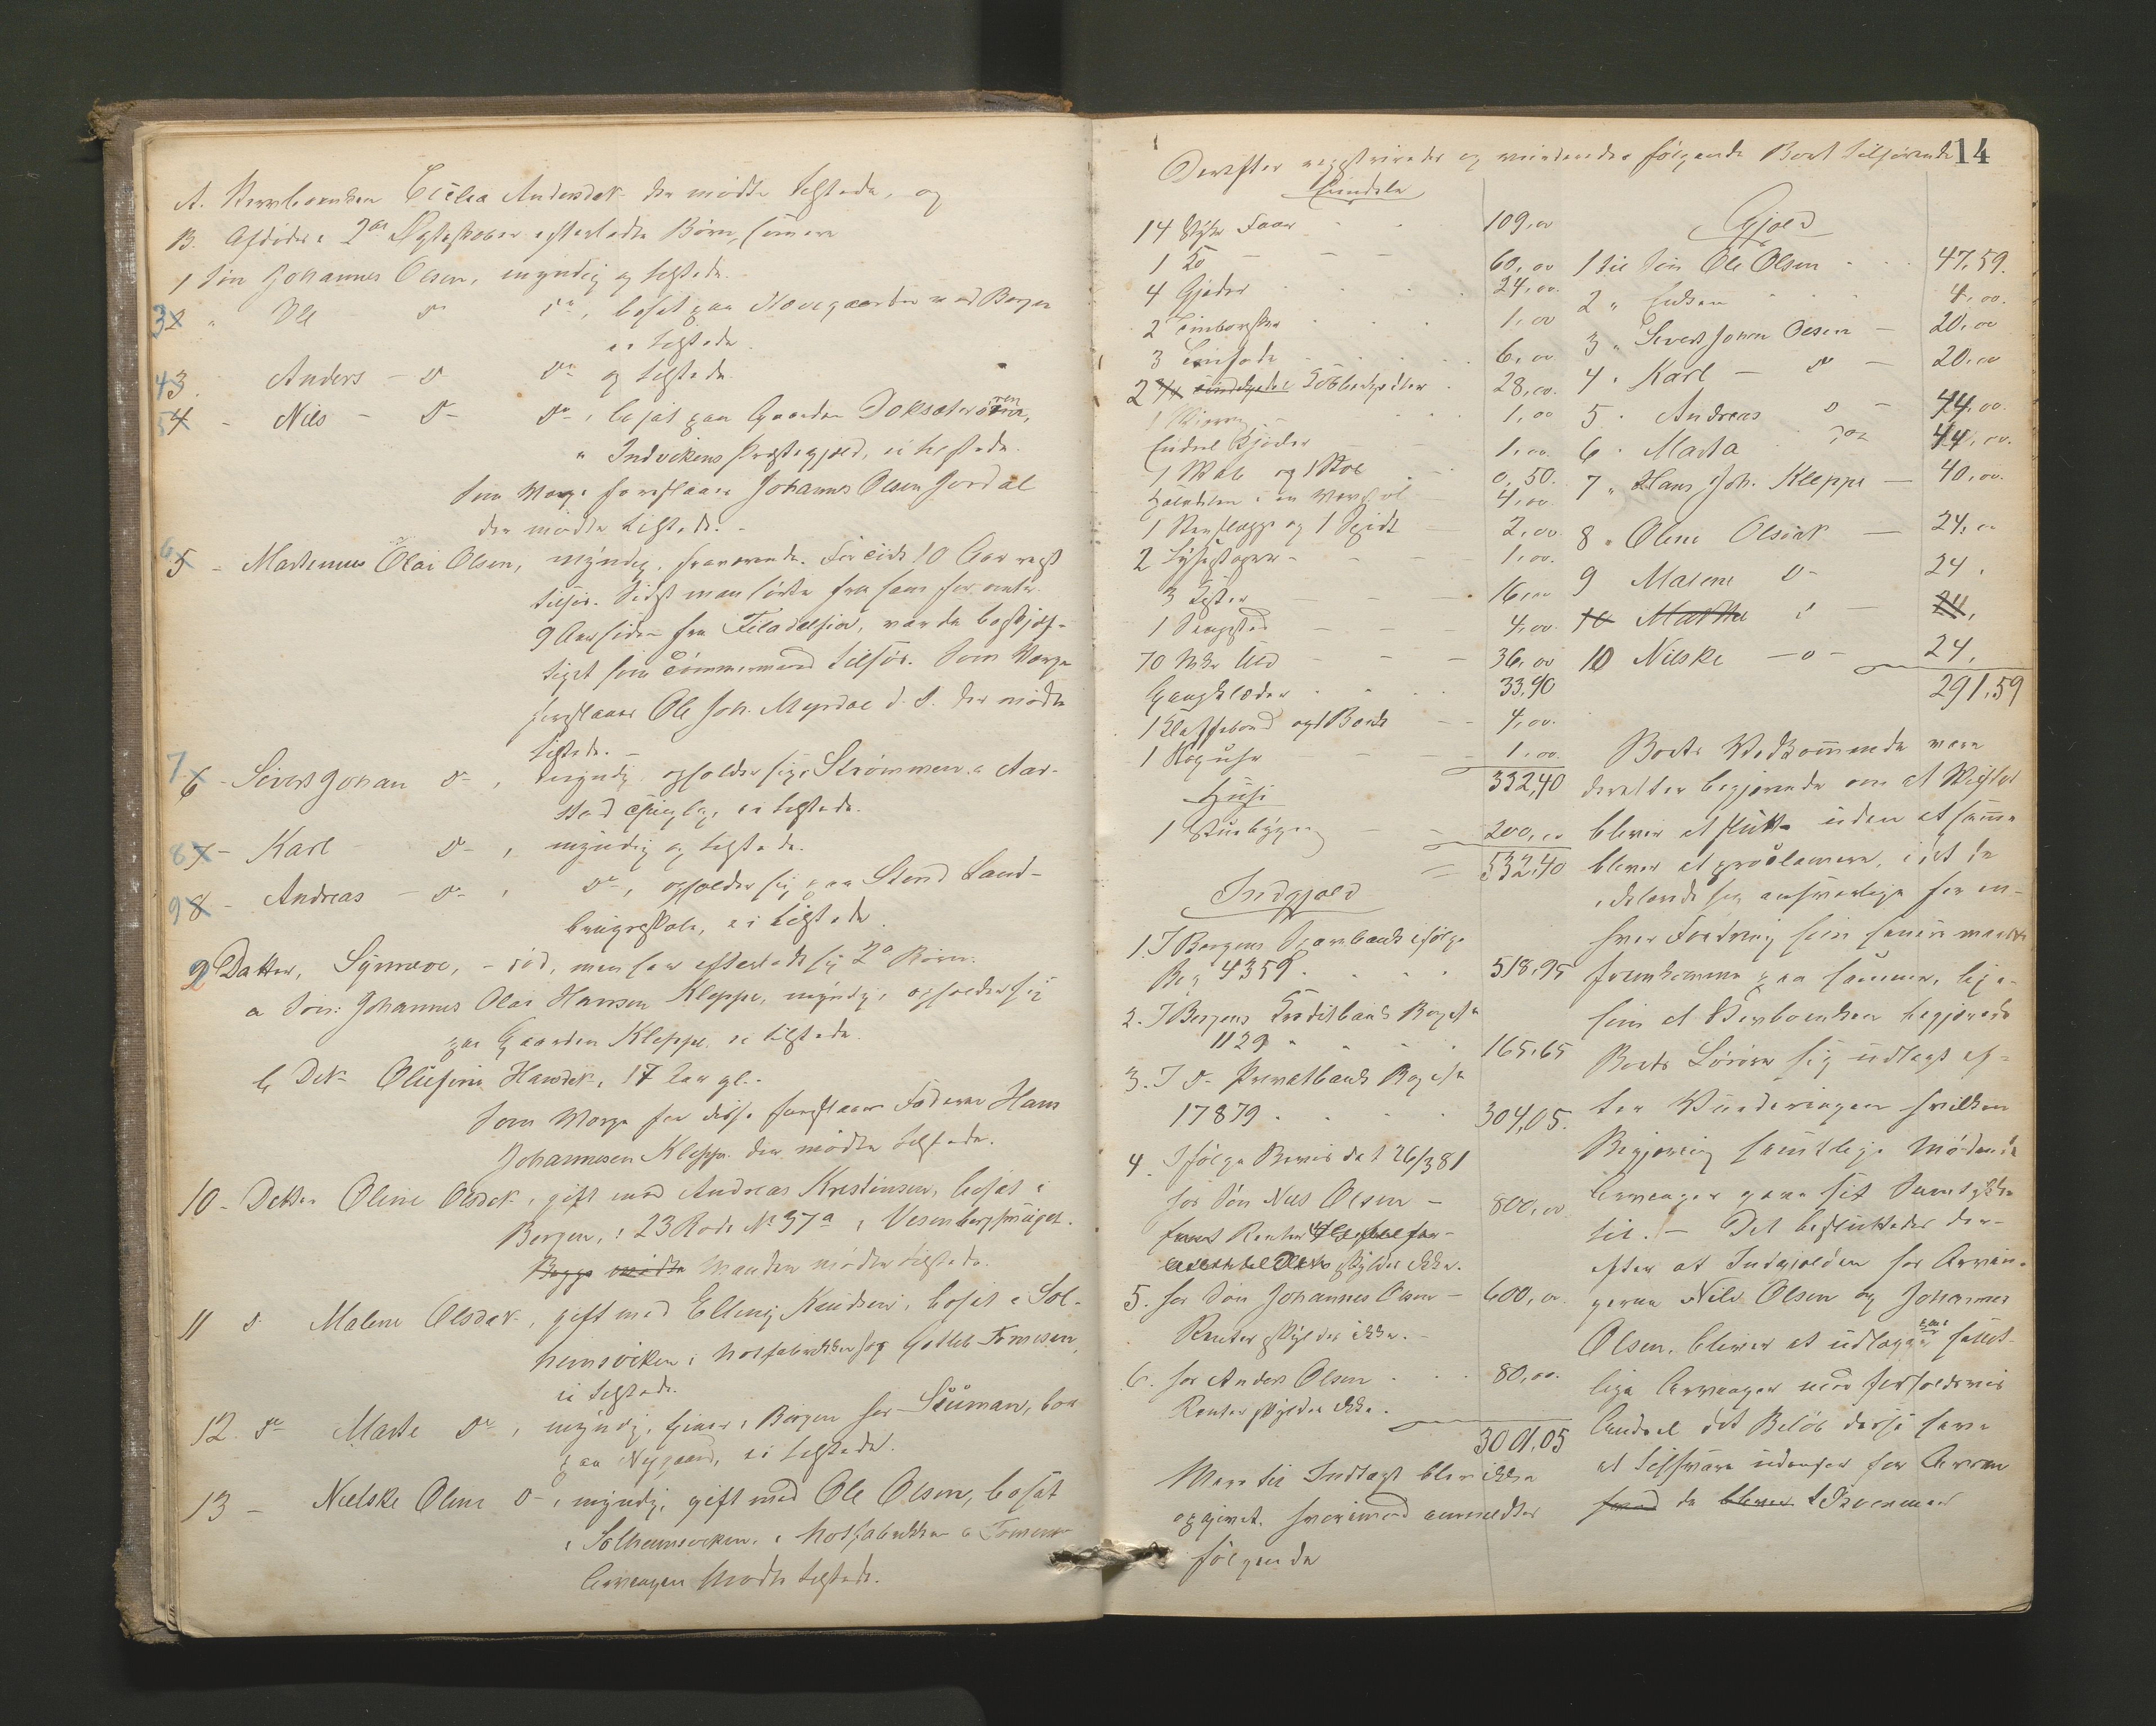 A. Stervboenken Cicilia Andersdatr der mødte tilstede, og
B. Afdødes i 2de Ægteskaber efterladte Børn, som ere
1 Søn Johannes Olsen, myndig og tilstede.
3 2 " Ole do do, bosat paa Nævegaarden ved Bergen
ei tilstede.
4 3. Anders - do do og tilstede
5 4 - Nils - do do, bosat paa Gaarden Doksæterøren,
i Indvikens Præstegjæld, ei tilstede.
Som Værge foreslaaes Johannes Olsen Jordal
der mødte tilstede. -
6 5 - Martinus Olai Olsen, myndig, fraværende. For ca 10 Aar reist
tilsjøs. Sidst man hørte fra ham for omtr.
9 Aar siden fra Filadelfia, var da beskjæf-
tiget som Tømmermand tilsjøs. Som Værge
foreslaaes Ole Joh. Myrdal d. S. der mødte
tilstede. -
7 6 - Sivert Johan do, myndig opholder sig i Strømmen i Aar-
stad Thinglag, ei tilstede.
8 7 - Karl do, myndig og tilstede.
9 8 - Andreas - do, do, opholder sig paa Stend Land-
brugsskole, ei tilstede.
9 Datter, Synneve, - død, men har efterladt sig 2 Børn.
a Søn: Johannes Olai Hansen Kleppe, myndig, opholder sig
paa Gaarden Kleppe. ei tilstede.
b Datr Oliefine Hansdatr, 17 Aar gl. -
Som Værge for disse foreslaaes Faderen Hans
Johannesen Kleppe der mødte tilstede.
10 - Datter Oline Olsdatr, gift med Andreas Kristensen, bosat i
Bergen, i 23 Rode No 37a, i Vesenbergsmuget.
Begge mødte Manden mødte tilstede.
11 do Malene Olsdatr, gift med Elling Knudsen, bosat i Sol-
heimsviken, i hos Gotlieb Tomesen,
ei tilstede.
12. do Marte do, myndig, tjener i Bergen hos Skuman, boe
paa Nygaard, ei tilstede.
13 - Nielske Oline do, myndig, gift med Ole Olsen, bosat
i Solheimsviken, i
Arvingen mødte tilstede.
14
Derefter registreredes og vurderedes følgende Boet tilhørende
Eiendele
14 Stykr Faar 109,00
1 Ko 60,00
4 Gjeder 24,00
1,00
3 6,00
2 28,00
1 1,00
Endel 1,00
1 og 1 Stol 0,50.
Halvdelen i en Vævstol 4,00
1 og 1 Spidt 2,00
2 1,00.
3 Kister 16,00
1 Sengsted 4,00
70 Mkr Uld 36,00
Gangklæder 33,90
1 Klaffebord og 1 Bænk 4,00.
1 1,00
332,40
Huse
1 Stuebygng 200,00
532,40
Indgjæld
1. I Bergens Sparebank ifølge
Bog 4359 518,95
2. I Bergens Kreditbank Bog No
1129 165,65
3. I do Privatbank Bog No
17879 304,05.
4. Ifølge Bevis dat 26/3 81
hos Søn Nils Olsen - 800,00
samt Renter
skyldes ikke.
5. hos Søn Johannes Olsen - 600,00
Renter skyldes ikke. -
6. hos Anders Olsen 80,00.
Renter skyldes ikke.
3001,05
Mere til Indtægt blev ikke
opgivet. hvorimod anmeldtes
følgende
Gjæld
1 til Søn Ole Olsen 47,59.
2 " Enken 4,00.
3 " Sivert Johan Olsen - 20,00
4 " Karl - do - 20,00
5 " Andreas do - 44,00.
6 " Marta 44,00.
7 " Hans Joh. Kleppe - 40,00.
8 " Oline Olsdatr - 24,00
9 Malene do - 24,
10 Martha do - 24,
10 Nilske - do - 24,
291,59
Boets Vedkommende vare
derefter begjærende om at Skiftet
blever at slutte uden at samme
blever at proclamere, idet de
erklærede sig ansvarlige for en-
hver Fordring som senere maatte
fremkomme paa samme, lige-
som at Stervboenken begjærede
Boets Løsøre sig udlagt ef-
ter Vurderingen hvilken
Begjæring samtlige mødende
Arvinger gave sit Samtykke
til. - Det besluttedes der-
efter at Indgjælden hos Arvin-
gerne Nils Olsen og Johannes
Olsen, bliver at udlægge samt-
lige Arvinger med forholdsvis
Andeel det Beløb disse have
at tilsvare udenfor sin Arven
hvad de blever tilkommer